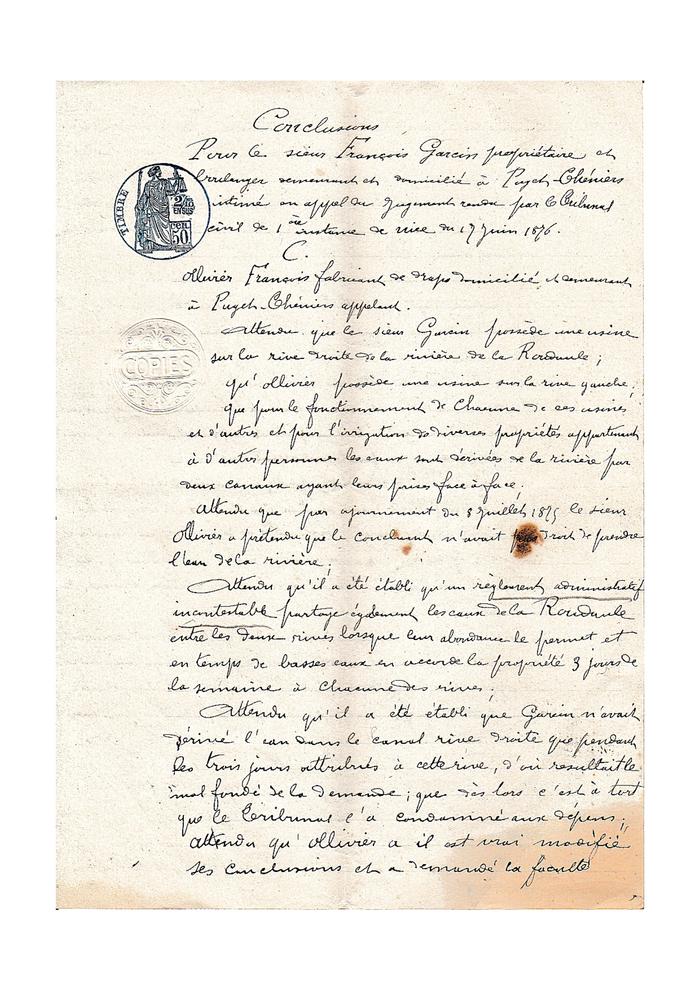 Conclusions
Pour le sieur François Garcin propriétaire et
boulanger demeurant et domicilié à Puget-Théniers
intimé en appel du jugement rendu par le tribunal
civil de 1ère instance de Nice du 17 juin 1876.
C.
Ollivier François fabricant de draps domicilié et demeurant
à Puget-Théniers appelant.
Attendu que le sieur Garcin possède une usine
sur la rive droite de la rivière de la Roudoule ;
qu'Ollivier possède une usine sur la rive gauche ;
que pour le fonctionnement de chacune de ces usines
et d'autres et pour l'irrigation de diverses propriétés appartenant
à d'autres personnes les eaux sont dérivées de la rivière par
deux canaux ayant leurs prises face à face.
Attendu que par ajournement du 8 juillet 1875 le sieur
Ollivier a prétendu que le concluant n'avait droit de prendre
l'eau de la rivière ;
Attendu qu'il a été établi qu'un règlement administratif
incontestable partage également les eaux de la Roudoule
entre les deux rives lorsque leur abondance le permet et
en temps de basses eaux en accorde la propriété 3 jours de
la semaine à chacune des rives ;
Attendu qu'il a été établi que Garcin n'avait
dérivé l'eau dans le canal rive droite que pendant
les trois jours attribués à cette rive, d'où resultait le
mal fondé de la demande ; que dès lors c'est à tort
que le Tribunal l'a condamné aux dépens ;
Attendu qu'Ollivier a il est vrai modifié
ses conclusions et a demandé la faculté
TIMBRE
2/10
EN SUS
CEN.
50
COPIES